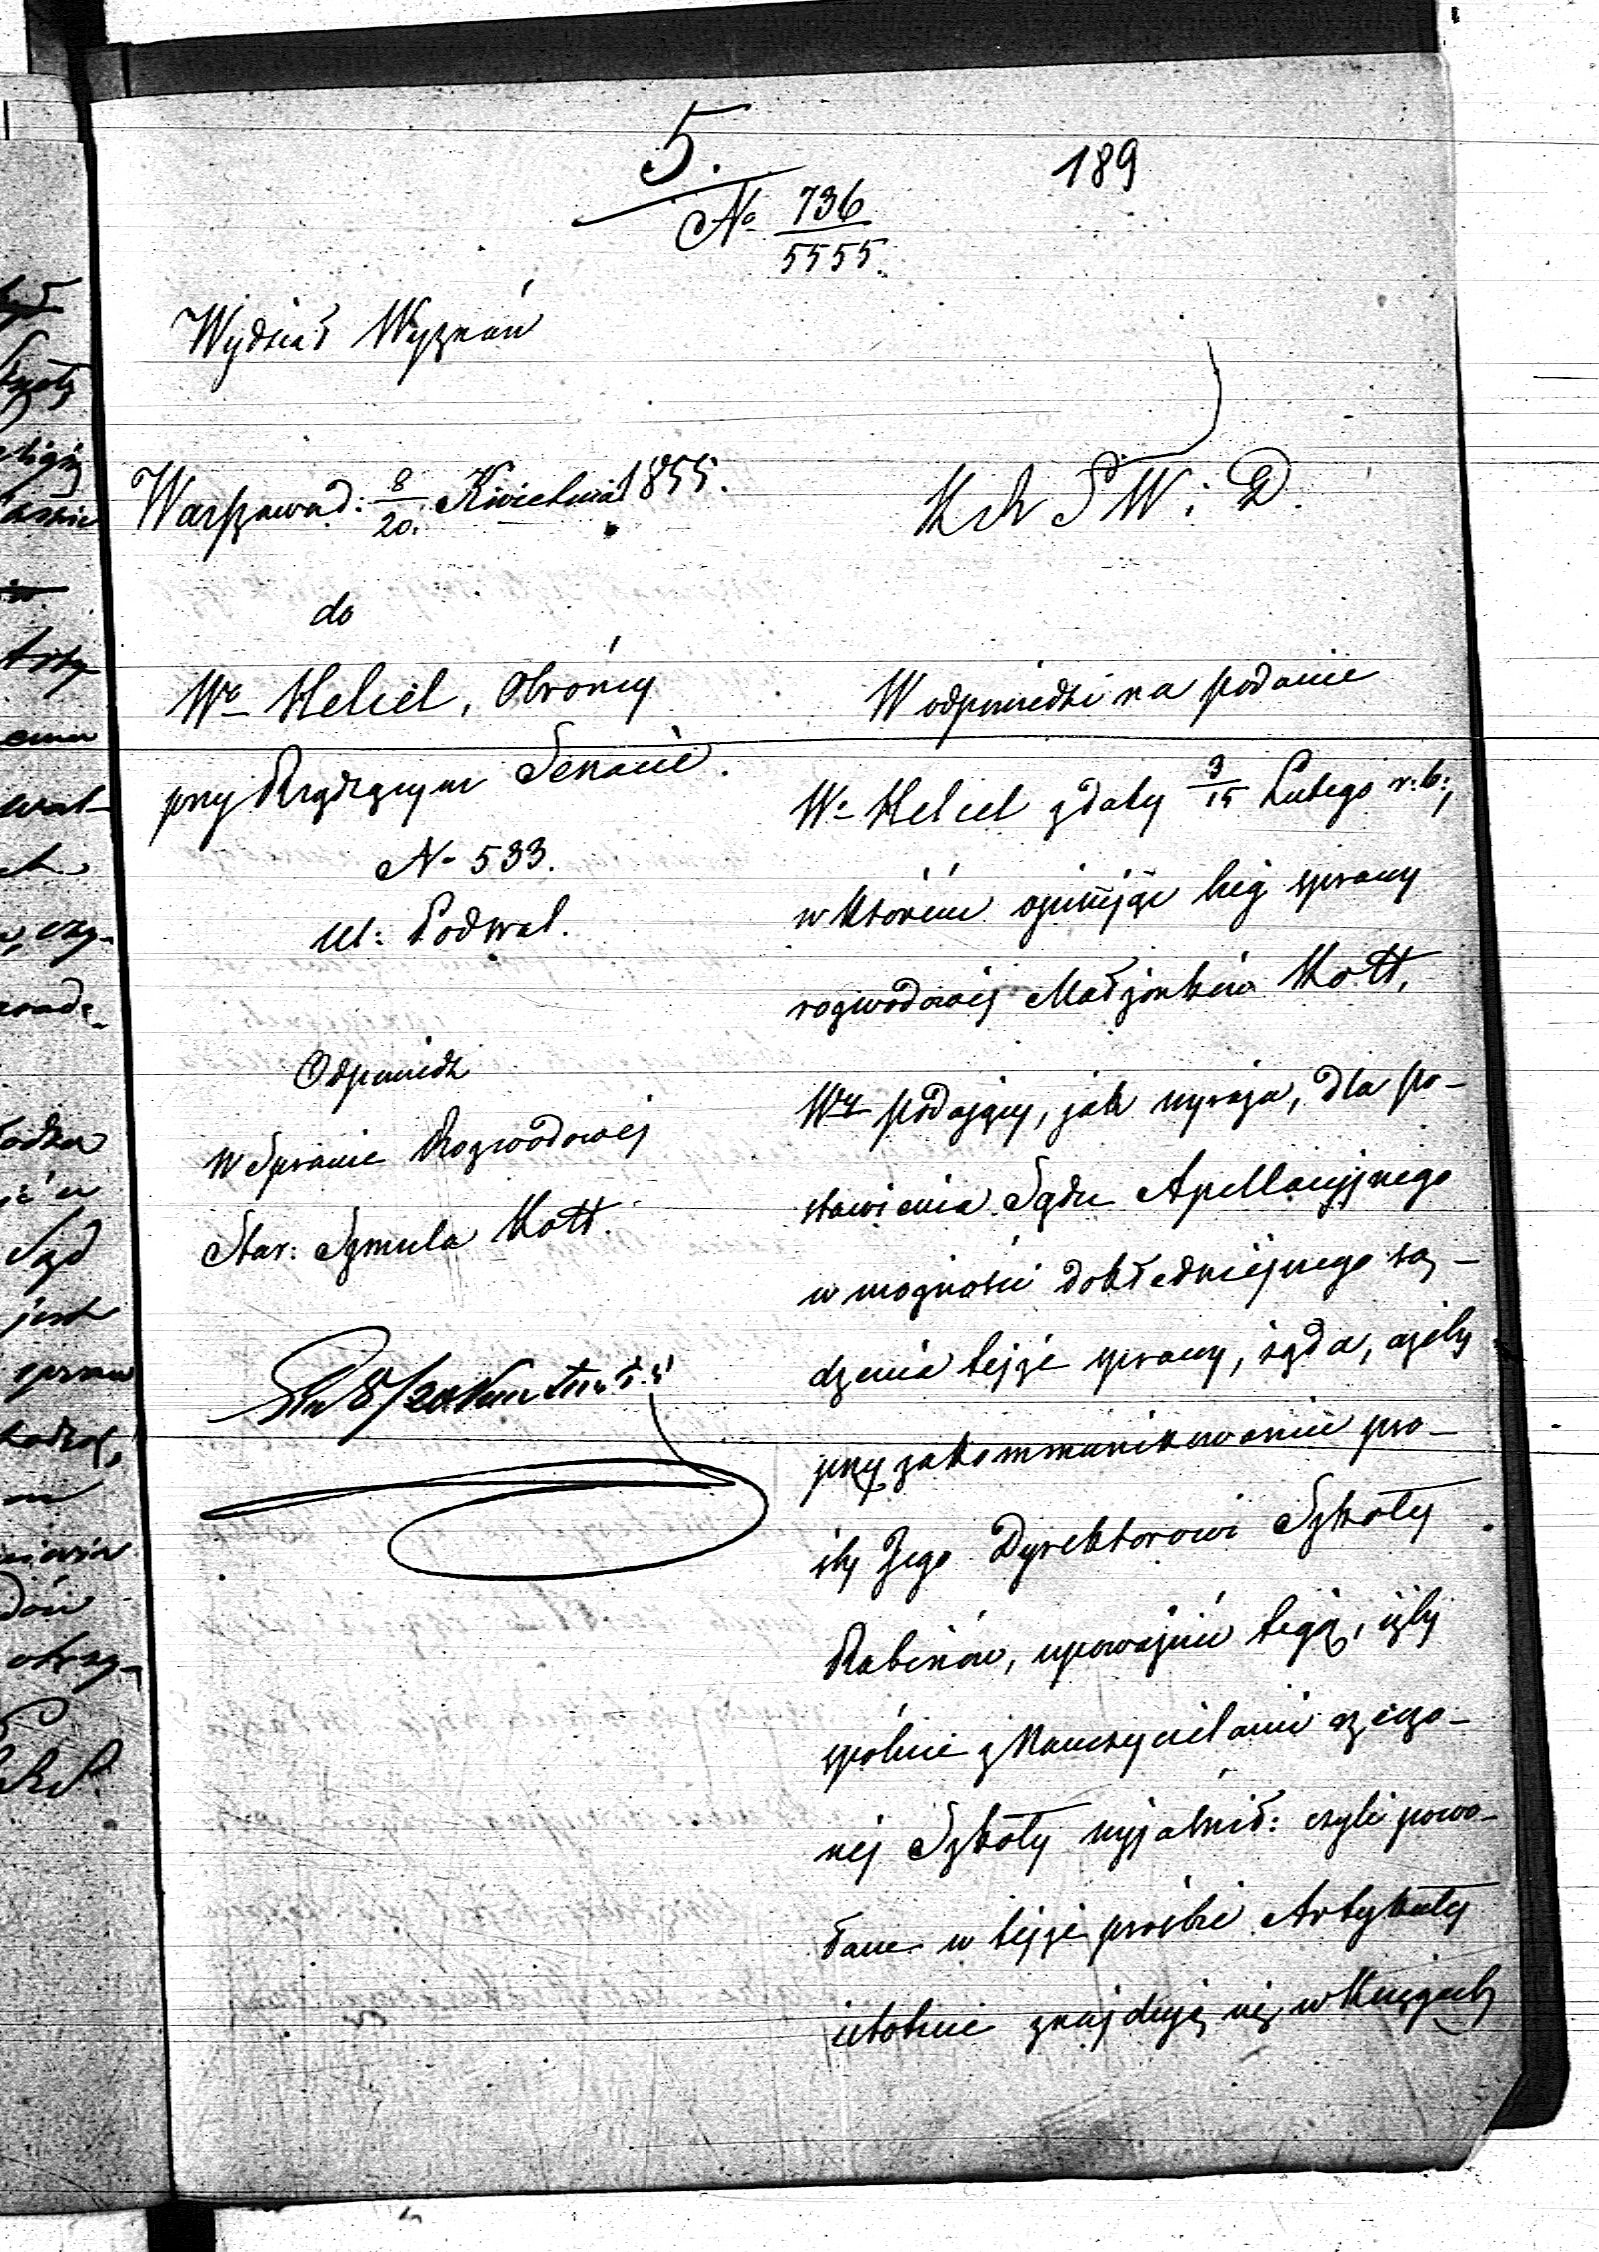 5.
189
No 736
5555.
Wydział Wyznań
Warszawa d. 8/20. Kwietnia 1855.
K R S W i D.
do
Wo Helcel, Obrońcy
przy Rządzącym Senacie.
No 533.
Ul: Podwal.
Odpowiedź
W Sprawie Rozwodowej
Star: Szmula Kott.
8/20
W odpowiedzi na podanie
Wo Helcel z daty 3/15 Lutego r. b.,
w którém opiniując bieg sprawy
rozwodowéj Małżonków Kott,
Wny podający, jak wyraża, dla po-
stawienia Sądu Apellacyjnego
w możności dokładniejszego są-
dzenia tejże sprawy, żąda, ażeby
przy zakommunikowaniu proś-
by Jego Dyrektorowi Szkoły
Rabinów, upoważnić tegoż, iżby
spólnie z Nauczycielami rzeczo-
néj Szkoły wyjaśnił: czyli powo-
łane w tejże prośbie Artykuły
istotnie znajdują się w Księgach